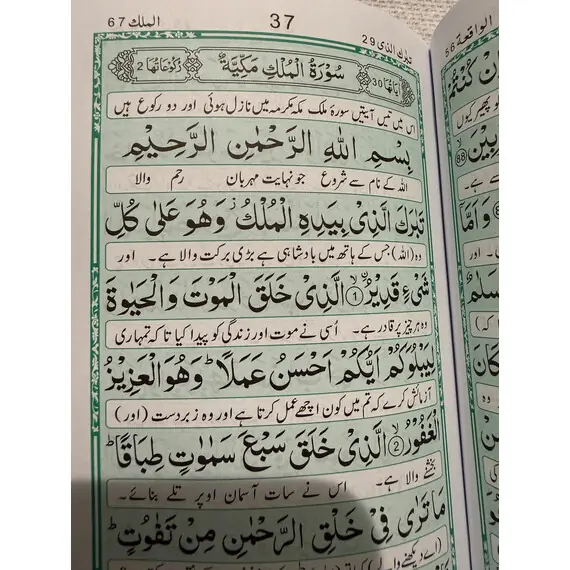 الملك 67
37
تبرك الذى 29
اٰيَاتُهَا 30 سُوْرَةُ الْمُلْكِ مَكِّيَّةٌ رُكُوْعَاتُهَا 2
اس میں تیس آیتیں سورۂ ملک مکہ مکرمہ میں نازل ہوئی اور دو رکوع ہیں
بِسْمِ اللهِ الرَّحْمٰنِ الرَّحِيْمِ
اللہ کے نام سے شروع جو نہایت مہربان رحم والا
تَبٰرَكَ الَّذِىْ بِيَدِهِ الْمُلْكُ ز وَهُوَ عَلٰى كُلِّ
وہ (اللہ) جس کے ہاتھ میں بادشاہی ہے بڑی برکت والا ہے۔ اور
شَىْءٍ قَدِيْرُ ۨ ۙ﴿1﴾ الَّذِىْ خَلَقَ الْمَوْتَ وَالْحَيٰوةَ
وہ ہر چیز پر قادر ہے۔ اُسی نے موت اور زندگی کو پیدا کیا تاکہ تمہاری
لِيَبْلُوَكُمْ اَيُّكُمْ اَحْسَنُ عَمَلًا ؕ وَهُوَ الْعَزِيْزُ
آزمائش کرے کہ تم میں کون اچھے عمل کرتا ہے اور وہ زبردست (اور)
الْغَفُوْرُ ۙ﴿2﴾ الَّذِىْ خَلَقَ سَبْعَ سَمٰوٰتٍ طِبَاقًا ؕ
بخشنے والا ہے۔ اس نے سات آسمان اوپر تلے بنائے۔
مَا تَرٰى فِىْ خَلْقِ الرَّحْمٰنِ مِنْ تَفٰوُتٍ ؕ
(اے دیکھنے والے)
الواقعة 56